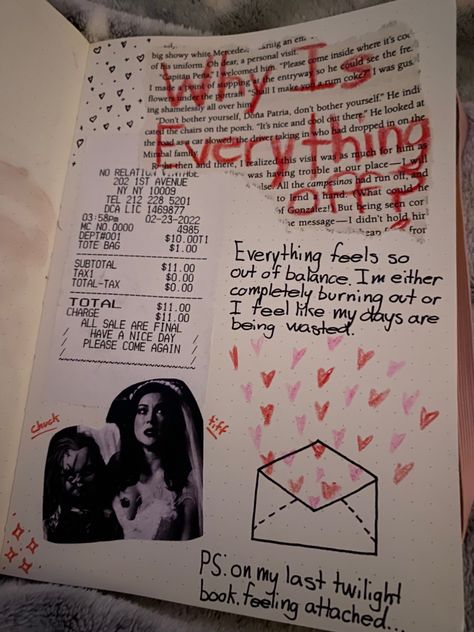 big showy white Mercedes
of his uniform. Oh dear, a personal visit.
"Capitán Peña," I welcomed him. "Please come inside where it's coo
I made a point of stopping at the entryway so he could see the fre
flowers under the portrait. "Shall I make you a rum coke?" I was gus
ing shamelessly all over him.
"Don't bother yourself, Doña Patria, don't bother yourself." He indi
cated the chairs on the porch. "It's nice and cool out here." He looked at
the road as a car slowed, the driver taking in who had dropped in on the
Mirabal family.
Right then and there, I realized this visit was as much for him as
was having trouble at our place—I will
else. All the campesinos had run off, and
to lend a hand. (What could he
of Gonzalez!) But being scor
he message—I didn't hold hir
from
Why Is
Everything
off?
NO RELATION VINTAGE
202 1ST AVENUE
NY NY 10009
TEL 212 228 5201
DCA LIC 1469877
03:58PM 02-23-2022
MC NO.0000 4985
DEPT#001 $10.00T1
TOTE BAG $1.00
SUBTOTAL $11.00
TAX1 $0.00
TOTAL-TAX $0.00
TOTAL $11.00
CHARGE $11.00
ALL SALE ARE FINAL
HAVE A NICE DAY
PLEASE COME AGAIN
Everything feels so
out of balance. Im either
completely burning out or
I feel like my days are
being wasted.
chuck
tiff
PS: on my last twilight
book. feeling attached...